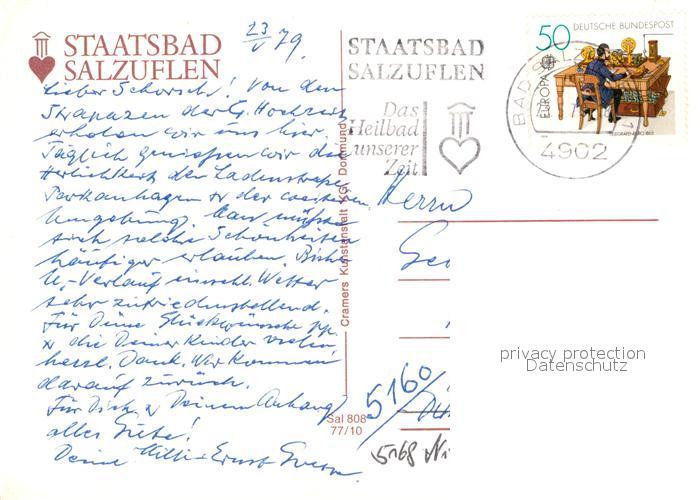 STAATSBAD
SALZUFLEN
23
V 79.
Lieber Schorsch! Von den
Strapazen der G. Hochzeit
erholen wir uns hier.
Täglich genießen wir die
Herrlichkeit der Ladenstraße,
Parkanlagen & der weiteren
Umgebung. Man müßte
sich solche Schönheiten
häufiger erlauben. Bisher
U.-Verlauf einschl. Wetter
sehr zufriedenstellend.
Für Deine Glückwünsche
& die Deiner Kinder vielen
herzl. Dank. Wir kommen
darauf zurück.
Für Dich & Deinen Anhang
alles Gute!
Deine Ernst
Cramers Kunstanstalt KG, Dortmund
Sal 808
77/10
STAATSBAD
SALZUFLEN
Das
Heilbad
unserer
Zeit
BAD S
4902
50 DEUTSCHE BUNDESPOST
EUROPA
Herrn
Ge
5160
5168 Ni
privacy protection
Datenschutz